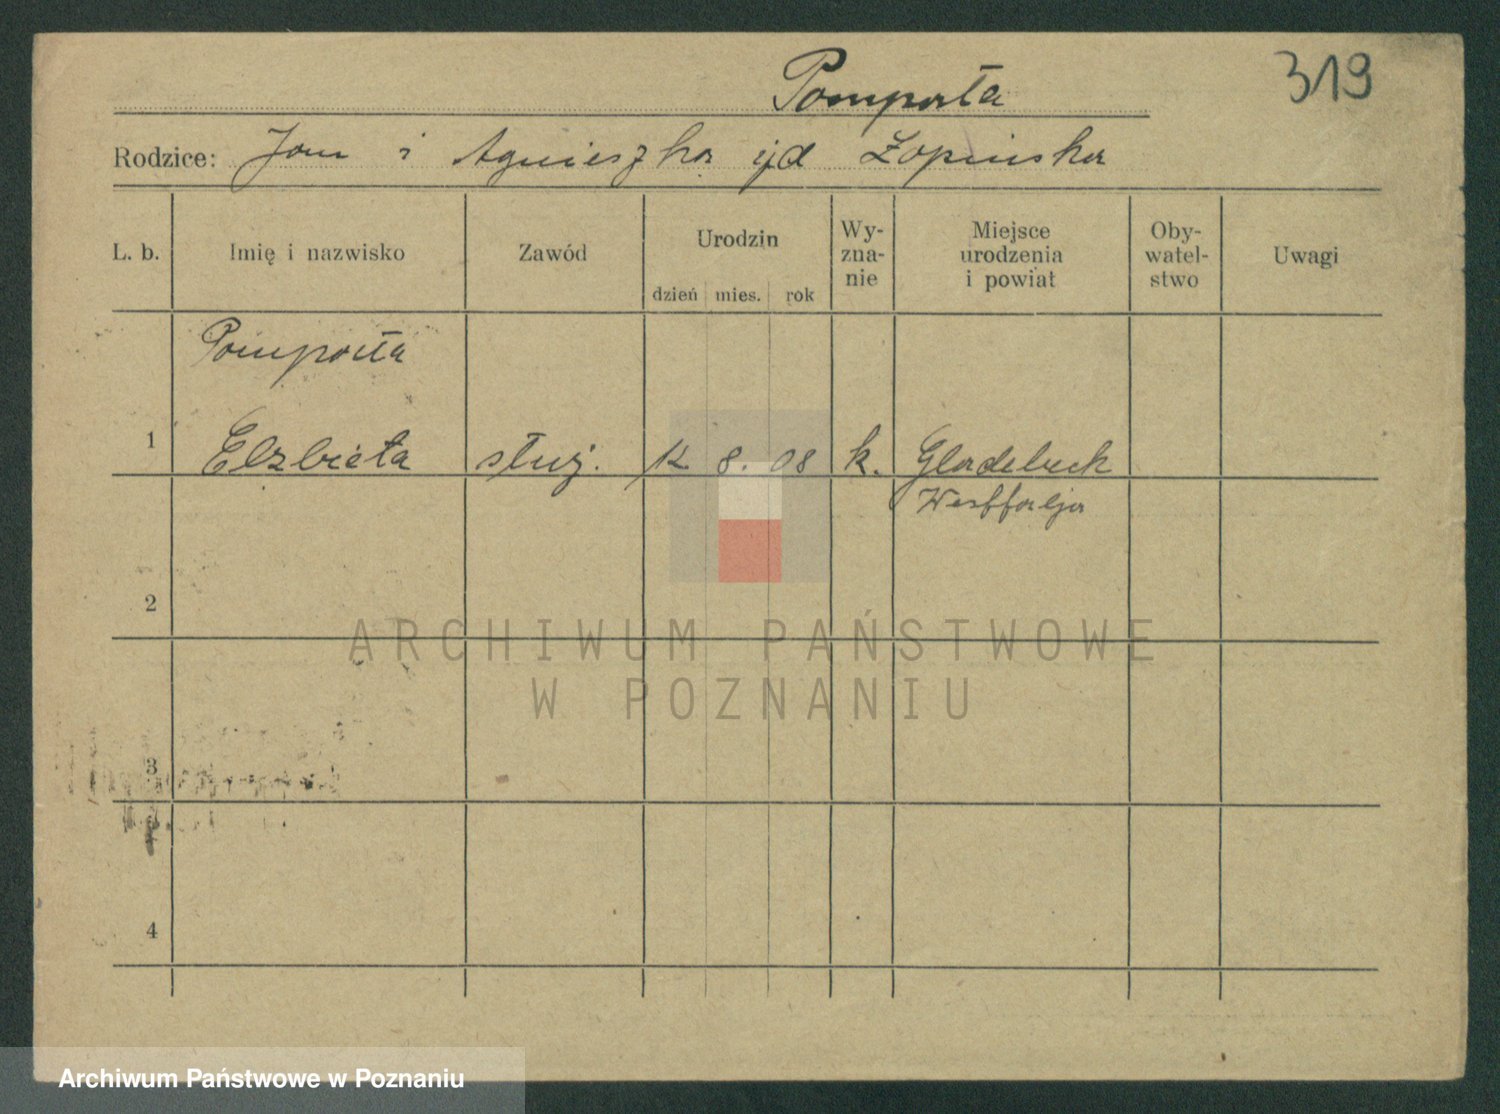 319
Pomporta
Rodzice: Jan i Agnieszka Łopińska
L. b. Imię i nazwisko Zawód Urodzin dzień mies. rok Wy-zna-nie Miejsce urodzenia i powiat Oby-watel-stwo Uwagi
Pomporta
1 Elzbieta służ. 12 8. 08 k. Gladebeck
Westfalja
2
ARCHIWUM PAŃSTWOWE
W POZNANIU
3
4
Archiwum Państwowe w Poznaniu